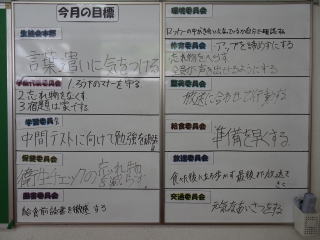 今月の目標
生徒会本部
言葉遣いに気をつける
学級代表委員会
1.ろうかのマナーを守る
2.忘れ物をなくす
3.宿題は家でする
学習委員会
中間テストに向けて勉強を頑張る
保健委員会
衛生チェックの忘れ物を減らす
図書委員会
給食前読書を徹底する
環境委員会
ロッカーの中がきれいになっているか自分で確認する
体育委員会
アップを諦めずにする
忘れ物をへらす
全員が声を出せるようにする
整美委員会
放送に合わせて行動する
給食委員会
準備を早くする
放送委員会
食べた後に立ち歩かず最後まで放送をきく
交通委員会
元気なあいさつをする